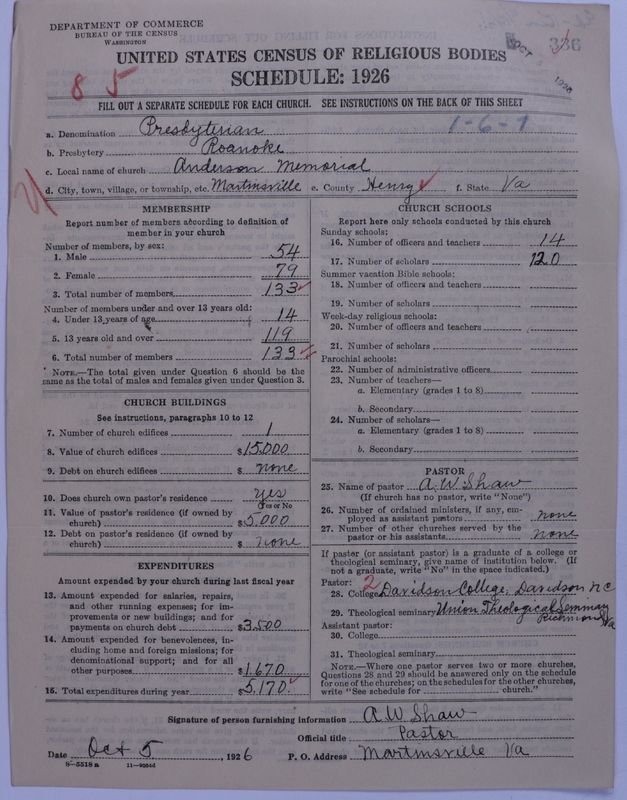 DEPARTMENT OF COMMERCE
BUREAU OF THE CENSUS
WASHINGTON
OCT 1926
336
UNITED STATES CENSUS OF RELIGIOUS BODIES
SCHEDULE: 1926
8 5
FILL OUT A SEPARATE SCHEDULE FOR EACH CHURCH. SEE INSTRUCTIONS ON THE BACK OF THIS SHEET
a. Denomination Presbyterian 1-6-1
b. Presbytery Roanoke
c. Local name of church Anderson Memorial
d. City, town, village, or township, etc. Martinsville e. County Henry f. State Va
MEMBERSHIP
Report number of members according to definition of
member in your church
Number of members, by sex:
1. Male 54
2. Female 79
3. Total number of members 133
Number of members under and over 13 years old:
4. Under 13 years of age 14
5. 13 years old and over 119
6. Total number of members 133
NOTE.—The total given under Question 6 should be the
same as the total of males and females given under Question 3.
CHURCH BUILDINGS
See instructions, paragraphs 10 to 12
7. Number of church edifices 1
8. Value of church edifices $15.000
9. Debt on church edifices $ none
10. Does church own pastor's residence yes
(Yes or No)
11. Value of pastor's residence (if owned by
church) $5.000
12. Debt on pastor's residence (if owned by
church) $ none
EXPENDITURES
Amount expended by your church during last fiscal year
13. Amount expended for salaries, repairs,
and other running expenses; for im-
provements or new buildings; and for
payments on church debt $3.500
14. Amount expended for benevolences, in-
cluding home and foreign missions; for
denominational support; and for all
other purposes $1.670
15. Total expenditures during year $5.170.
CHURCH SCHOOLS
Report here only schools conducted by this church
Sunday schools:
16. Number of officers and teachers 14
17. Number of scholars 120
Summer vacation Bible schools:
18. Number of officers and teachers
19. Number of scholars
Week-day religious schools:
20. Number of officers and teachers
21. Number of scholars
Parochial schools:
22. Number of administrative officers
23. Number of teachers—
a. Elementary (grades 1 to 8)
b. Secondary
24. Number of scholars—
a. Elementary (grades 1 to 8)
b. Secondary
PASTOR
25. Name of pastor A.W. Shaw
(If church has no pastor, write "None")
26. Number of ordained ministers, if any, em-
ployed as assistant pastors none
27. Number of other churches served by the
pastor or his assistants none
If pastor (or assistant pastor) is a graduate of a college or
theological seminary, give name of institution below. (If
not a graduate, write "No" in the space indicated.)
Pastor: 2
28. College Davidson College, Davidson N C
29. Theological seminary Union Theological Seminary
Richmond Va
Assistant pastor:
30. College
31. Theological seminary
NOTE.—Where one pastor serves two or more churches,
Questions 28 and 29 should be answered only on the schedule
for one of the churches; on the schedules for the other churches,
write "See schedule for church."
Signature of person furnishing information A.W. Shaw
Official title Pastor
Date Oct 5, 1926 P. O. Address Martinsville Va
8—5518 a